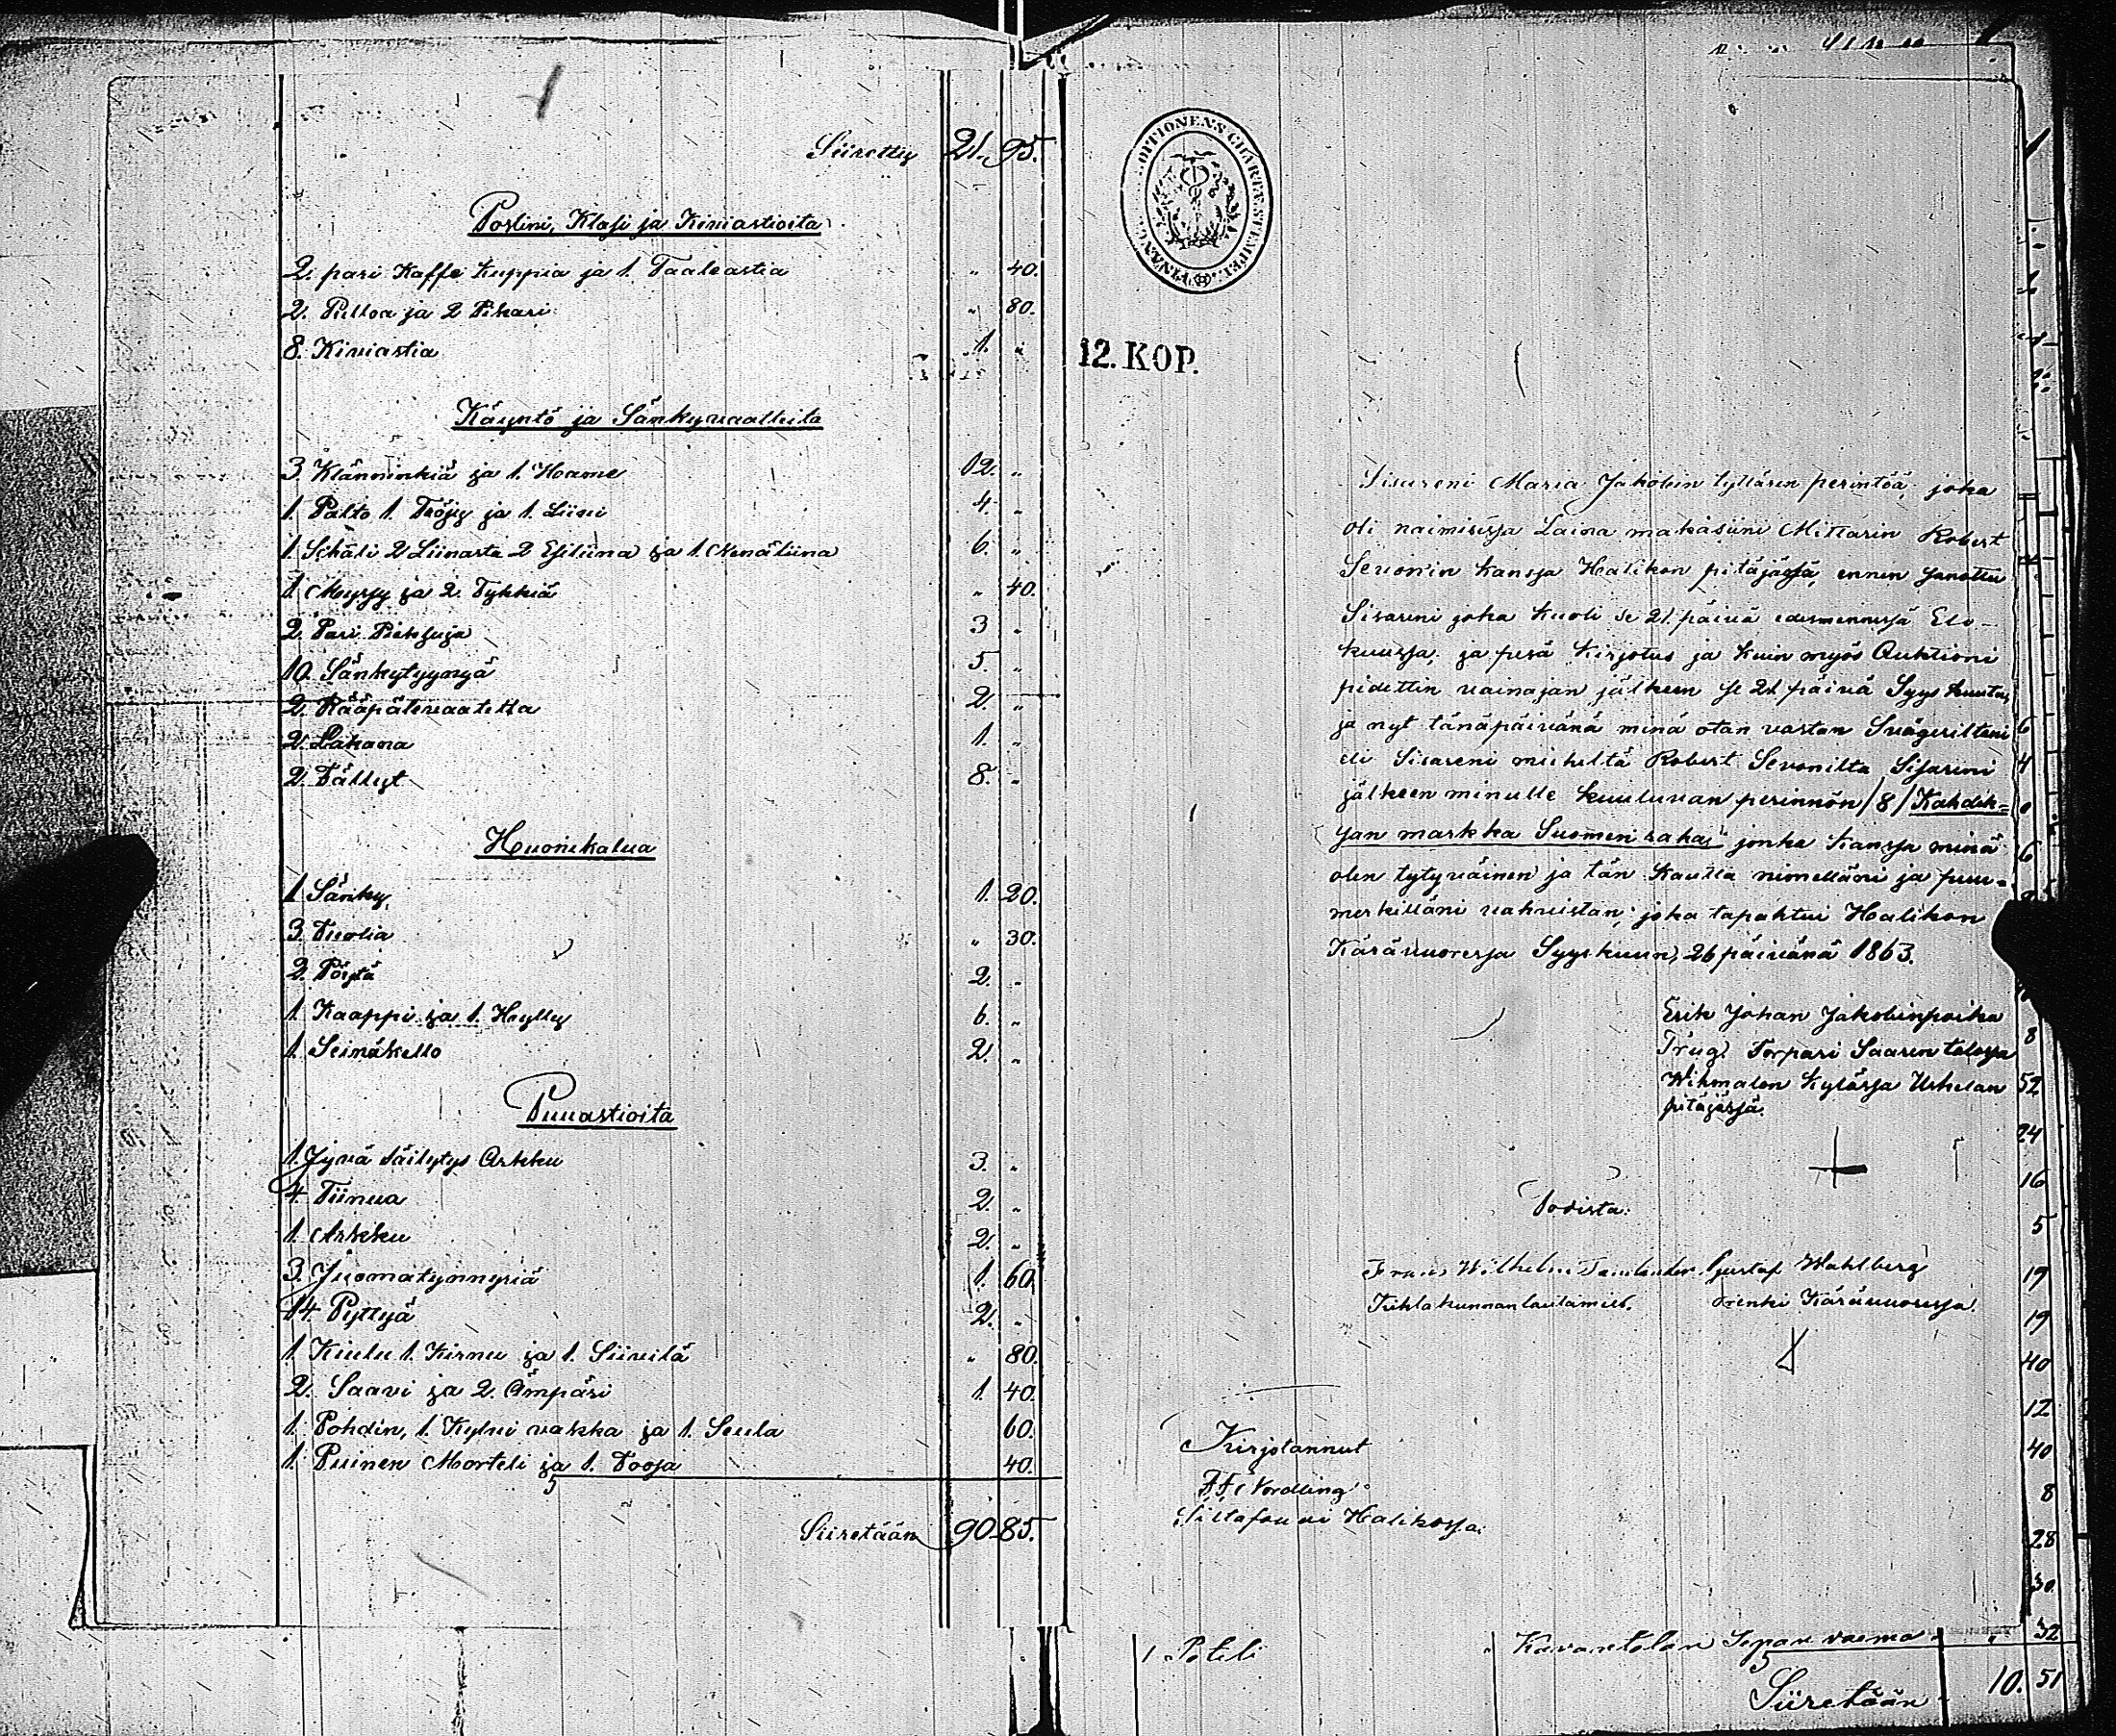 Siiretty 21. 95.
Poslini, Klasi ja Kiviastioita
2. pari Kaffe Kuppia ja 1. Taaleastia " 40.
2. Pulloa ja 2 Pikari " 80.
8. Kiviastia 1. "
Käyntö ja Sänkyvaatteita
3 Klänninkiä ja 1. Hame 12. "
1. Palto 1. Tröjy ja 1. Liivi 4. "
1. Schali 2 Liinasta 2 Esiliina ja 1. Nenäliina 6. "
1 Myssy ja 2. Tykkiä " 40.
2. Pari Pieksuja 3 "
10. Sänkytyynyä 5. "
2. Rääpälevaatetta 2. "
2. Lakana 1. "
2. Fällyt 8. "
Huonekalua
1 Sänky 1. 20.
3. Tuolia " 30.
2. Pöytä 2. "
1. Kaappi ja 1. Hylly 6. "
1. Seinäkello 2. "
Puuastioita
1. Jyvä säilytys Arkku 3. "
4. Tiinua 2. "
1. Arkku 2. "
3. Juomatynnyriä 1. 60.
14. Pyttyä 2. "
1 Kiulu 1. Kirnu ja 1. Siivilä " 80.
2. Saavi ja 2. Ämpäri 1. 40.
1. Pohdin, 1. Kylvi vakka ja 1. Seula 60.
1. Puinen Morteli ja 1. Toosa 40.
Siiretään 90. 85.
12. KOP.
Sisareni Maria Jakobin tyttären perintöä, joka
oli naimisissa Laina makasiini Mittarin Robert
Sevonin kanssa Halikon pitäjässä, ennen sanottu
Sisareni joka kuoli se 21. päivä edesmennessä Elo-
kuussa, ja pesä kirjotus ja kuin myös Auktioni
pidettin vainajan jälkeen se 21. päivä Syys kuuta,
ja nyt tänäpäivänä minä otan vastan Svägeriltäni
eli Sisareni mieheltä Robert Sevonilta Sisareni
jälkeen minulle kuuluvan perinnön /8/ Kahdek=
san markka Suomen rahaa jonka kanssa minä
olen tytyväinen ja tän kautta nimelläni ja puu=
merkilläni vahvistan; joka tapahtui Halikon
Kärävuoressa Syyskuun, 26 päivänä 1863.
Erik Johan Jakobinpoika
Torpari Saaren talossa
Wihmalon Kylässä Uskelan
pitäjässä.
Todista:
Frans Wilhelm Gustaf Wahlberg
Kihlakunnanlautamies. Renki Kärävuoressa.
Kirjotannut
F. F. Nordling
Halikossa.
1 Poteli " Kavantolan Sepan vaimo " 32
Siiretään 10. 51